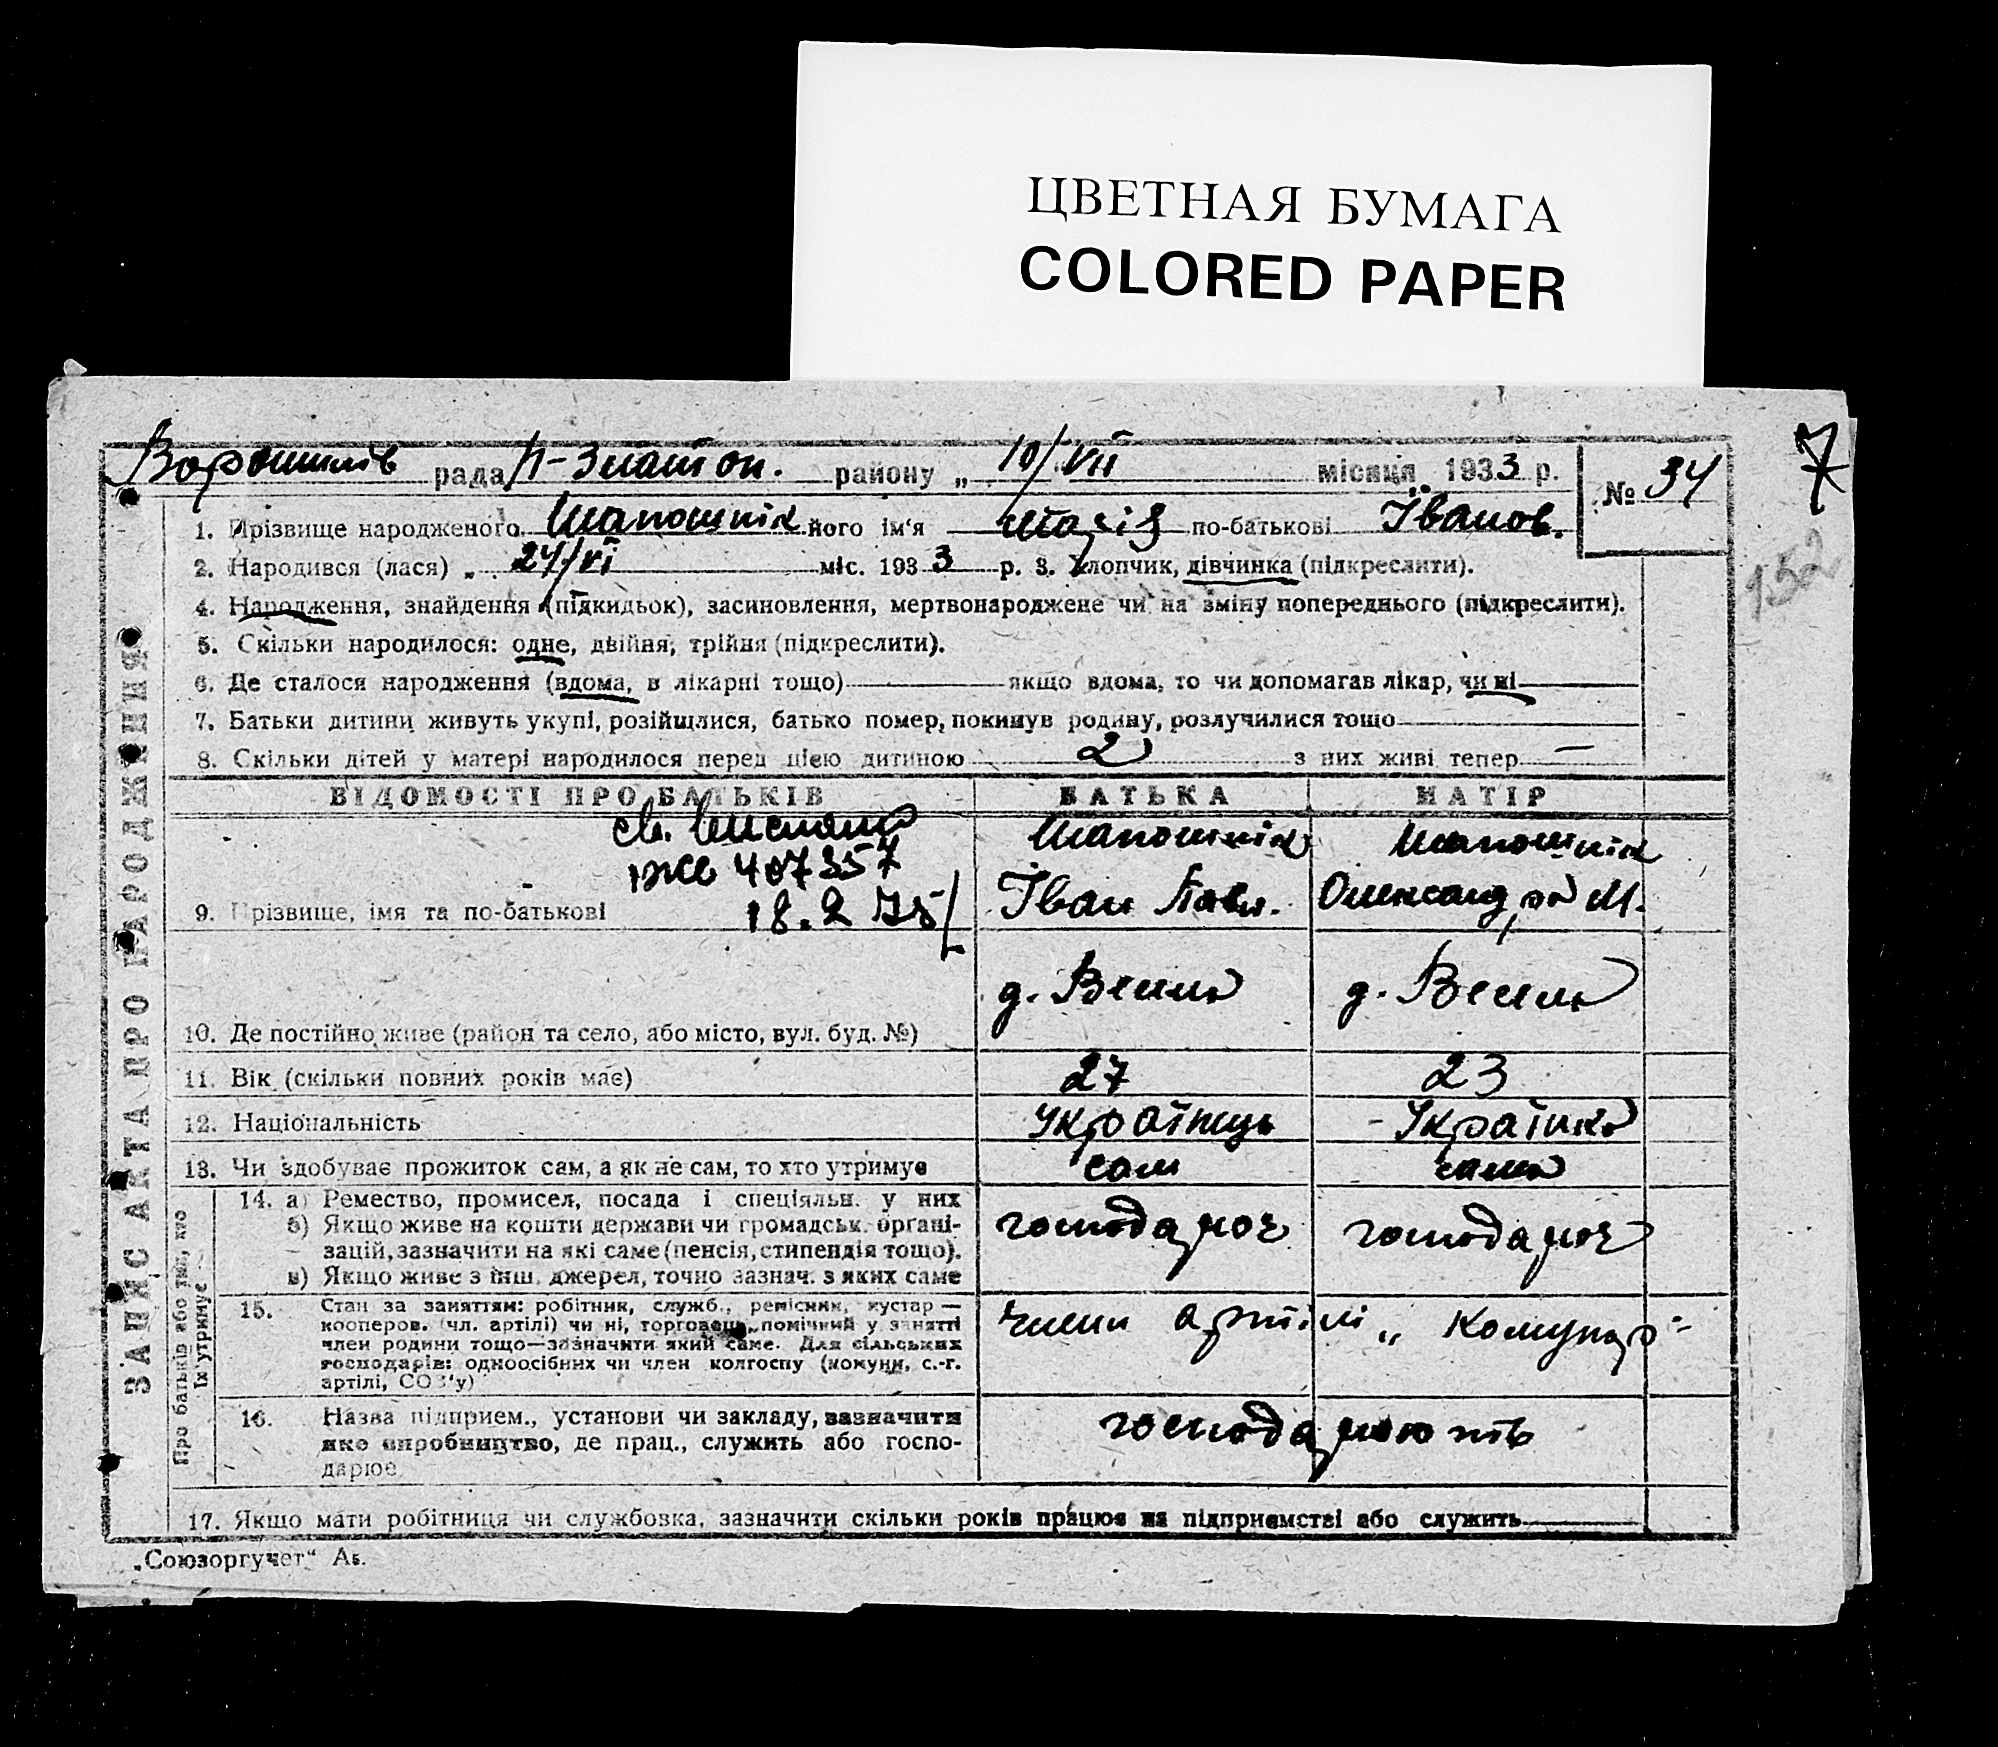 ЦВЕТНАЯ БУМАГА
COLORED PAPER
7
Ворошилів рада району „ 10/VII місяця 1933 р.
№ 34
1. Прізвище народженого Шапошнік його ім'я Марія по-батькові Іванов.
2. Народився (лася) „ 24/VI міс. 1933 р. 3. Хлопчик, дівчинка (підкреслити).
152
4. Народження, знайдення (підкидьок), засиновлення, мертвонароджене чи на зміну попереднього (підкреслити).
5. Скільки народилося: одне, двійня, трійня (підкреслити).
6. Де сталося народження (вдома, в лікарні тощо) якщо вдома, то чи допомагав лікар, чи ні
7. Батьки дитини живуть укупі, розійшлися, батько помер, покинув родину, розлучилися тощо
8. Скільки дітей у матері народилося перед цією дитиною 2 з них живі тепер —
ВІДОМОСТІ ПРО БАТЬКІВ БАТЬКА МАТІР
св.
ІЖС 407357
18.2 75
9. Прізвище, імя та по-батькові
Шапошнік
Іван Павл.
Шапошнік
Олександра М.
10. Де постійно живе (район та село, або місто, вул. буд. №)
11. Вік (скільки повних років має) 27 23
12. Національність Українець - Українка
13. Чи здобуває прожиток сам, а як не сам, то хто утримує сам сама
14. а) Ремество, промисел, посада і спеціяльн. у них
б) Якщо живе на кошти держави чи громадськ. органі-
зацій, зазначити на які саме (пенсія, стипендія тощо).
в) Якщо живе з інш. джерел, точно зазнач. з яких саме
господарює господарює
15. Стан за заняттям: робітник, служб., ремісник, кустар —
кооперов. (чл. артілі) чи ні, торговець, помічний у занятті
член родини тощо—зазначити який саме. Для сільських
господарів: одноосібних чи член колгоспу (комуни, с.-г.
артілі, СОЗ'у)
члени артілі „ Комунар "
16. Назва підприєм., установи чи закладу, зазначити
яке виробництво, де прац., служить або госпо-
дарює
господарюють
17. Якщо мати робітниця чи службовка, зазначити скільки років працює на підприємстві або служить
ЗАПИС АКТА ПРО НАРОДЖЕННЯ
Про батьків або тих, хто
їх утримує
„Союзоргучет"